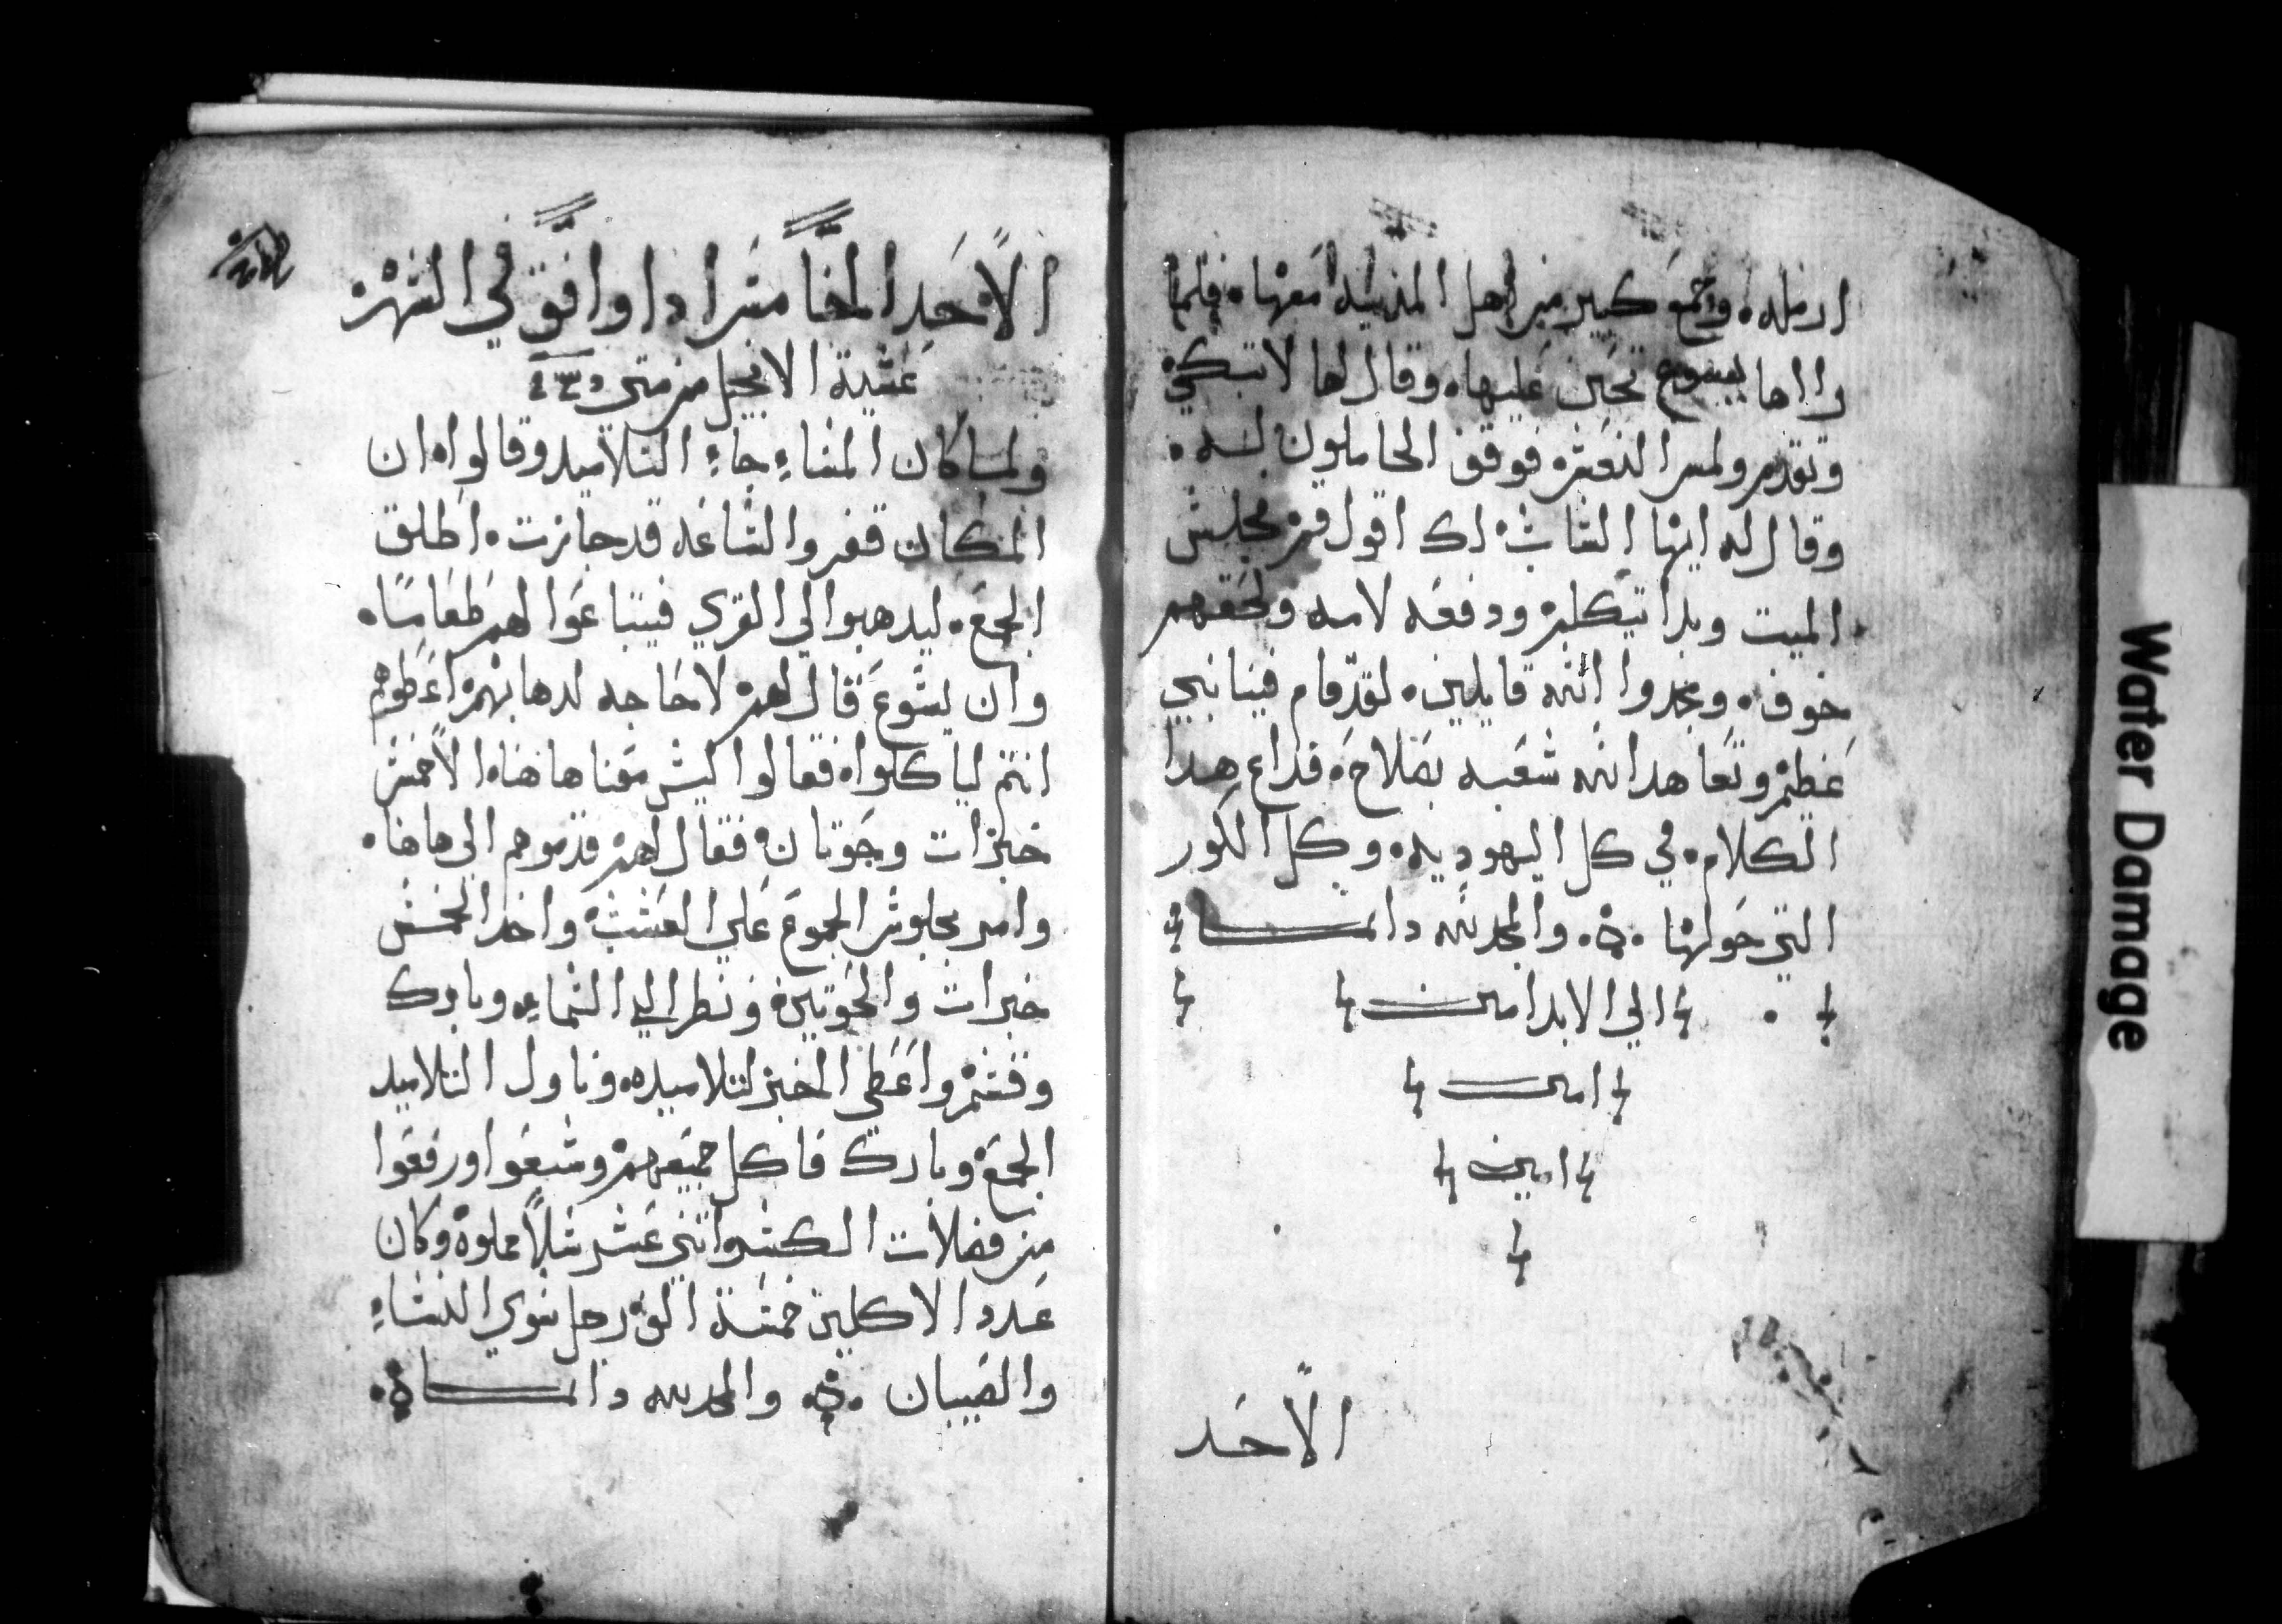 ارمله. وجمع كبير من اهل المدينه معها. فلما
رااها يسوع تحنن عليها. وقال لها لا تبكي
وتقدم ولمس النعش فوقف الحاملون له.
وقال له ايها الشاب لك اقول قم فجلس
الميت وبدا يتكلم ودفعه لامه ولحقهم
خوف. ومجدوا الله قايلين. لقد قام فينا نبي
عظيم وتعاهد الله شعبه بصلاح. فداع هدا
الكلام. في كل اليهوديه. وكل الكور
التي حولها. والمجد لله دايما
الي الابد امين
امين
امين
الاحد
الاحد الخامس ادا وافق في الشهر
عشية الانجيل من متي
ولما كان المساء جاء التلاميد وقالوا ان
المكان قفر والساعه قد جازت. اطلق
الجمع. ليدهبوا الي القري فيبتاعوا لهم طعاما.
وان يسوع قال لهم لا حاجه لدهابهم اعطوهم
انتم لياكلوا. فقالوا ليس معنا هاهنا. الا خمس
خبزات وحوتان فقال لهم قدموهم الي هاهنا.
وامر بجلوس الجموع علي العشب واخد الخمس
خبزات والحوتين ونظر الي السماء وبارك
وقسم واعطي الخبز لتلاميده. وناول التلاميد
الجمع وبارك فاكل جميعهم وشبعوا ورفعوا
من فضلات الكسر اتني عشر سلا مملوه وكان
عدد الاكلين خمسة الف رجل سوي النساء
والصبيان والمجد لله دايما
Water Damage